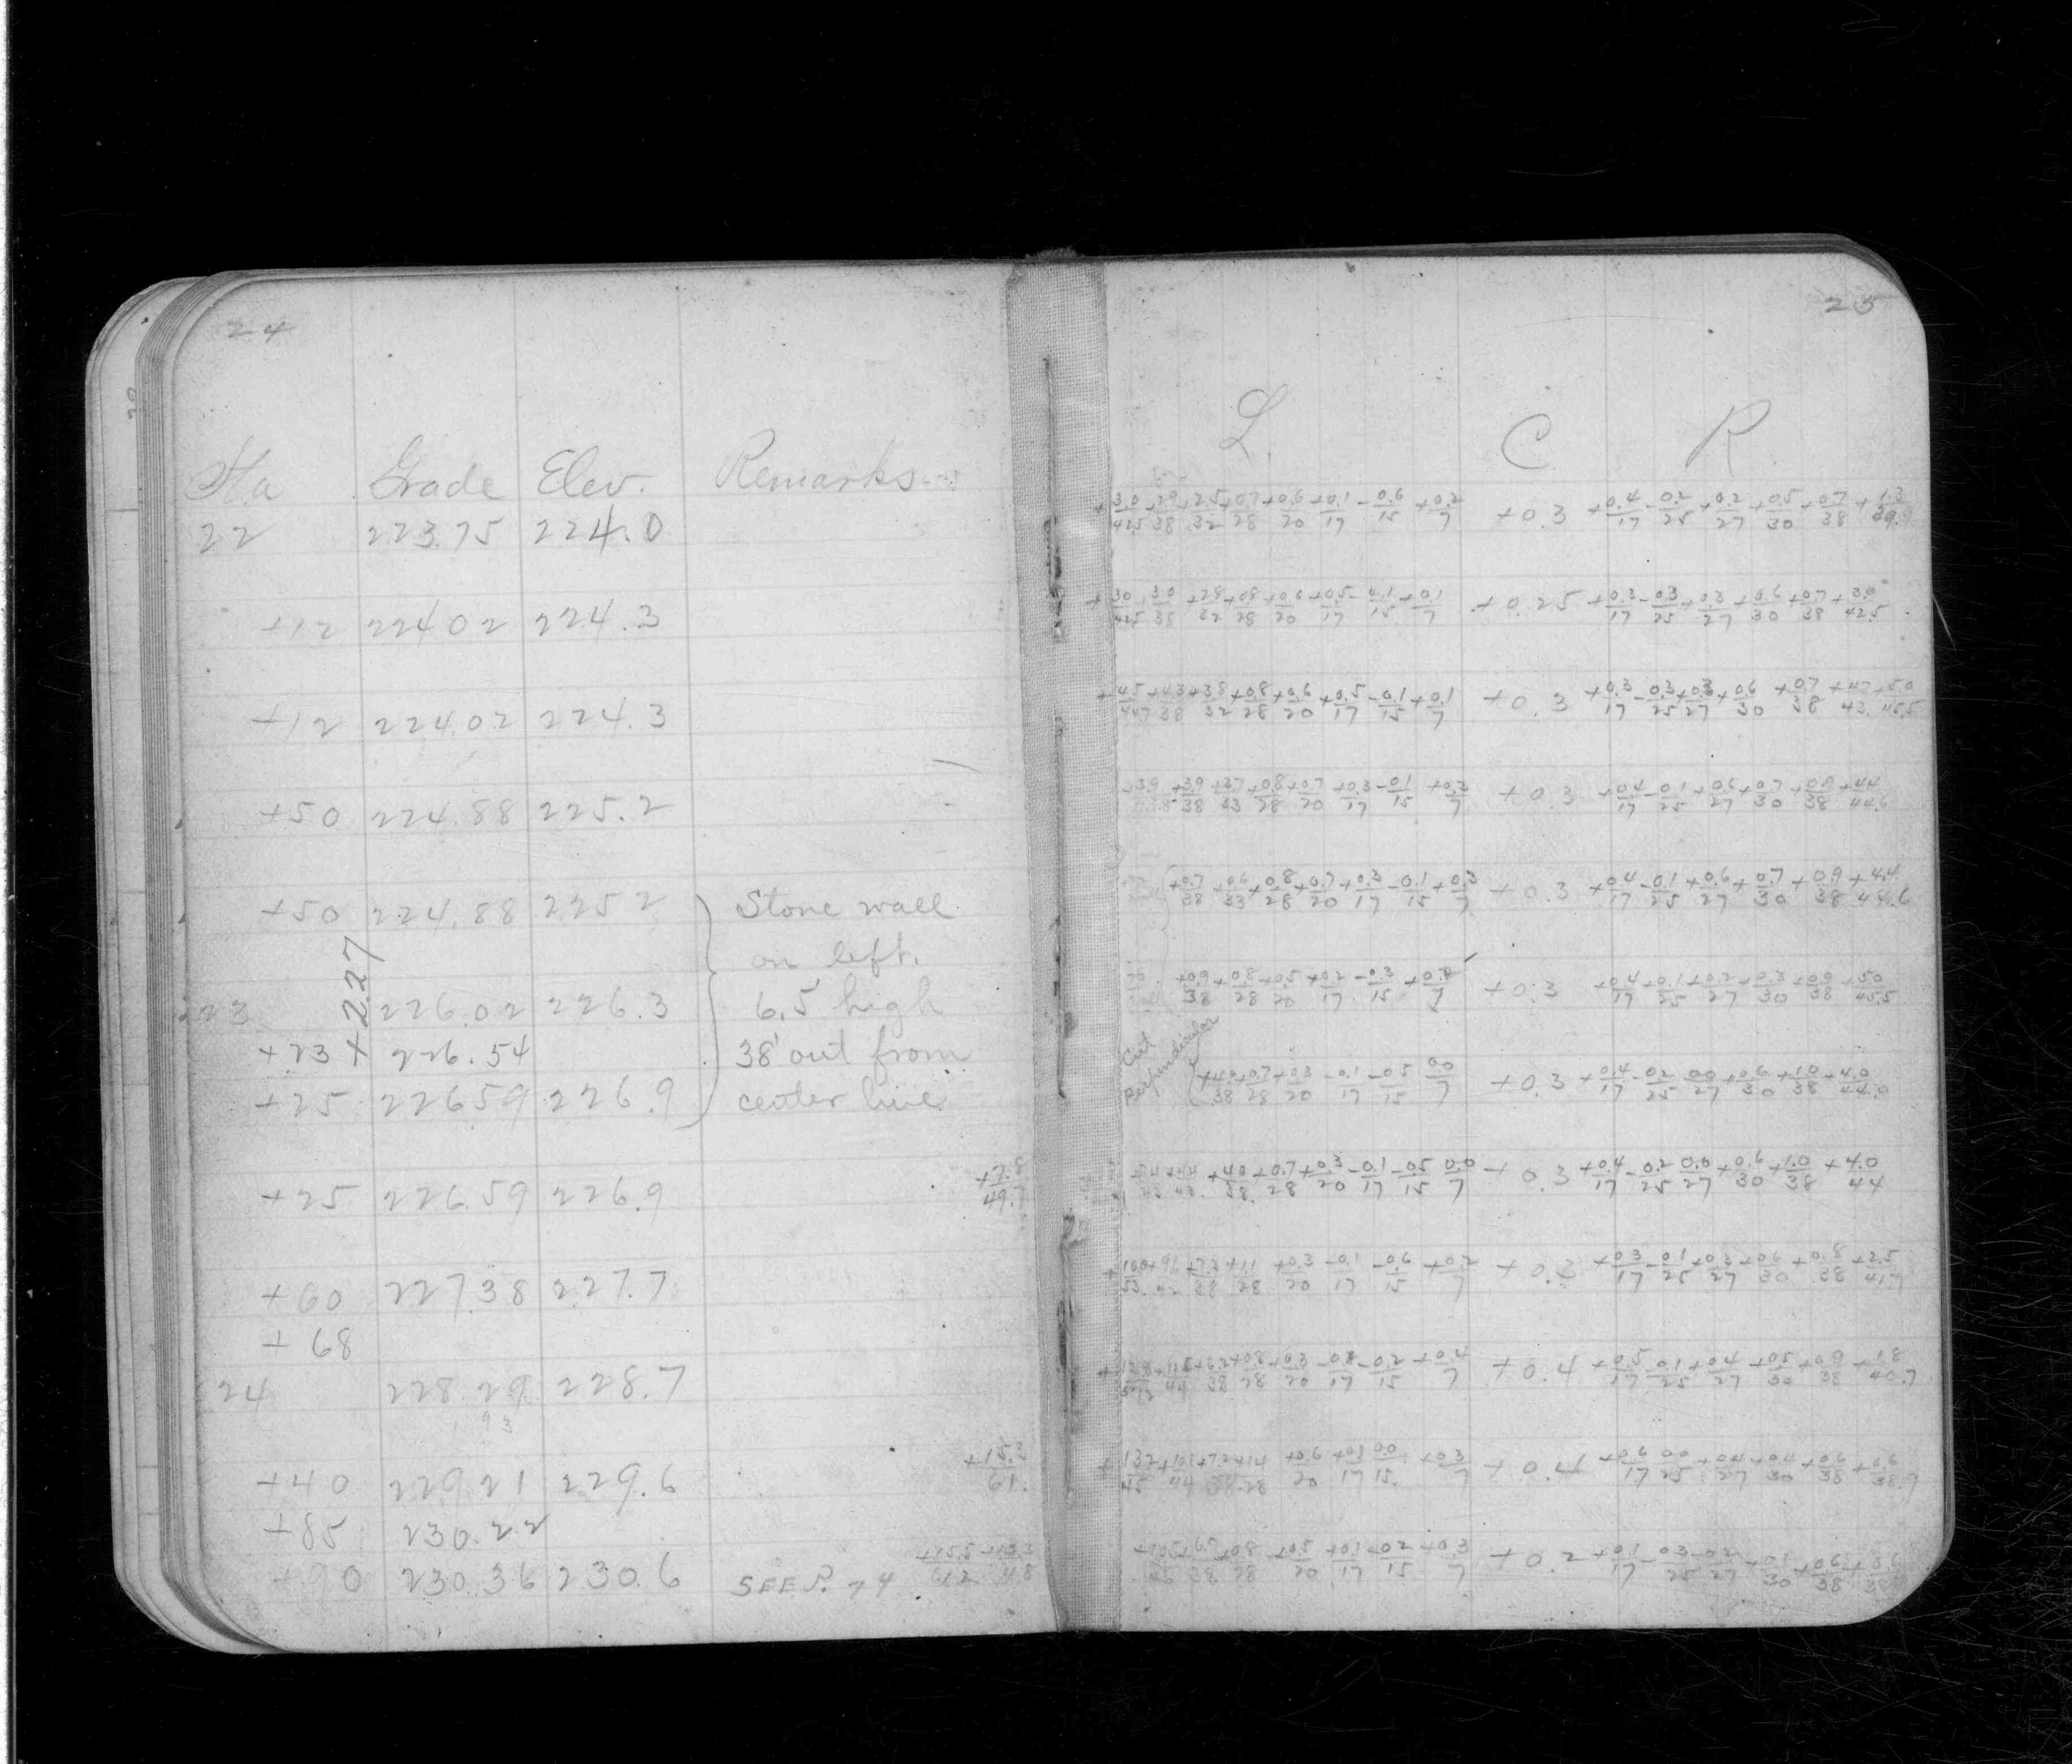 24
Sta Grade Elev. Remarks
22 223.75 224.0
+12 224 02 224.3
+12 224 02 224.3
+50 224.88 225.2
+50 224.88 225 2 Stone wall
on left.
23 226.02 226.3 6.5 high
+227
+23 226.54 38' out from
+25 226 59 226.9 center line
+25 226.59 226.9 +7.8/49.7
+60 227.38 227.7
+68
24 228.29 228.7
93
+40 229 21 229.6 +15.3/61.
+85 230.22
+90 230.36 230.6 SEE P. 74
25
L. C R
+3.0/42.5 +2.9/38 +2.5/32 +0.7/28 +0.6/20 +0.1/17 -0.6/15 +0.2/7 +0.3 +0.4/17 -0.2/25 +0.2/27 +0.5/30 +0.7/38 +1.3/39.
+3.0/42.5 +3.0/38 +2.8/32 +0.8/28 +0.6/20 +0.5/17 -0.1/15 +0.1/7 +0.25 +0.3/17 -0.3/25 +0.3/27 +0.6/30 +0.7/38 +3.0/42.5
+4.5/44.7 +4.3/38 +3.8/32 +0.8/28 +0.6/20 +0.5/17 -0.1/15 +0.1/7 +0.3 +0.3/17 -0.3/25 +0.3/27 +0.6/30 +0.7/38 +4.7/43. +5.0/45.5
+3.9/43.8 +3.9/38 +3.7/33 +0.8/28 +0.7/20 +0.3/17 -0.1/15 +0.2/7 +0.3 +0.4/17 -0.1/25 +0.6/27 +0.7/30 +0.9/38 +4.4/44.6
+0.7/38 +0.6/33 +0.8/28 +0.7/20 +0.3/17 -0.1/15 +0.2/7 +0.3 +0.4/17 -0.1/25 +0.6/27 +0.7/30 +0.9/38 +4.4/44.6
+0.9/38 +0.8/28 +0.5/20 +0.2/17 -0.3/15 +0.2/7 +0.3 +0.4/17 +0.1/25 +0.2/27 +0.3/30 +0.9/38 +5.0/45.5
Cut
Perpendicular
+4.0/38 +0.7/28 +0.3/20 -0.1/17 -0.5/15 0.0/7 +0.3 +0.4/17 -0.2/25 0.0/27 +0.6/30 +1.0/38 +4.0/44.0
+4.0/38. +0.7/28 +0.3/20 -0.1/17 -0.5/15 0.0/7 +0.3 +0.4/17 -0.2/25 0.0/27 +0.6/30 +1.0/38 +4.0/44
+7.2/38 +1.1/28 +0.3/20 -0.1/17 -0.6/15 +0.2/7 +0.3 +0.3/17 -0.1/25 +0.3/27 +0.6/30 +0.8/38 +2.5/41.7
+6.2/38 +0.8/28 +0.3/20 -0.2/15 +0.4/7 +0.4 +0.5/17 0.1/25 +0.4/27 +0.5/30 +0.9/38 +1.8/40.7
+13.2/45 +10.1/44 +7.2/38 +1.4/28 +0.6/20 +0.1/17 0.0/15. +0.3/7 +0.4 +0.6/17 0.0/25 +0.4/27 +0.4/30 +0.6/38 +0.6/38.9
+0.8/28 +0.5/20 +0.1/17 +0.2/15 +0.3/7 +0.2 +0.1/17 -0.3/25 -0.2/27 +0.1/30 +0.6/38